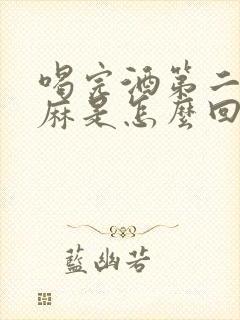 喝完酒第二
麻是怎麼回
藍幽若